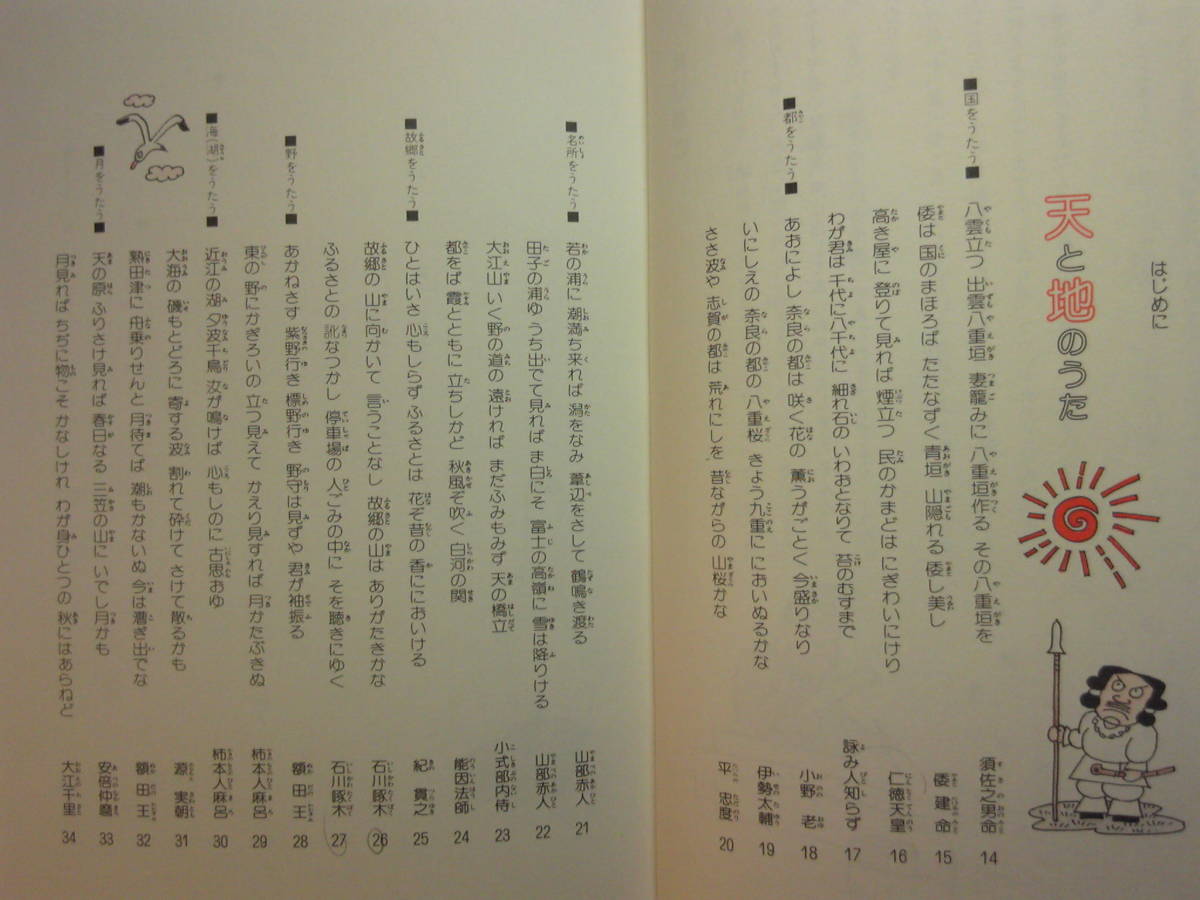 はじめに
天と地のうた
■国をうたう■
八雲立つ 出雲八重垣 妻籠みに 八重垣作る その八重垣を 須佐之男命 14
倭は 国のまほろば たたなずく 青垣 山隠れる 倭し美し 倭建命 15
高き屋に 登りて見れば 煙立つ 民のかまどは にぎわいにけり 仁徳天皇 16
わが君は 千代に八千代に 細れ石の いわおとなりて 苔のむすまで 詠み人知らず 17
■都をうたう■
あおによし 奈良の都は 咲く花の 薫うがごとく 今盛りなり 小野 老 18
いにしえの 奈良の都の 八重桜 きょう九重に においぬるかな 伊勢太輔 19
ささ波や 志賀の都は 荒れにしを 昔ながらの 山桜かな 平 忠度 20
■名所をうたう■
若の浦に 潮満ち来れば 潟をなみ 葦辺をさして 鶴鳴き渡る 山部赤人 21
田子の浦ゆ うち出でて見れば ま白にそ 富士の高嶺に 雪は降りける 山部赤人 22
大江山 いく野の道の 遠ければ まだふみもみず 天の橋立 小式部内侍 23
都をば 霞とともに 立ちしかど 秋風ぞ吹く 白河の関 能因法師 24
■故郷をうたう■
ひとはいさ 心もしらず ふるさとは 花ぞ昔の 香ににおいける 紀 貫之 25
故郷の 山に向かいて 言うことなし 故郷の山は ありがたきかな 石川啄木 26
ふるさとの 訛なつかし 停車場の 人ごみの中に そを聴きにゆく 石川啄木 27
■野をうたう■
あかねさす 紫野行き 標野行き 野守は見ずや 君が袖振る 額田王 28
東の 野にかぎろいの 立つ見えて かえり見すれば 月かたぶきぬ 柿本人麻呂 29
■海(湖)をうたう■
近江の湖 夕波千鳥 汝が鳴けば 心もしのに 古思おゆ 柿本人麻呂 30
大海の 磯もとどろに 寄する波 割れて砕けて さけて散るかも 源 実朝 31
熟田津に 舟乗りせんと 月待てば 潮もかないぬ 今は漕ぎ出でな 額田王 32
■月をうたう■
天の原 ふりさけ見れば 春日なる 三笠の山に いでし月かも 安倍仲麿 33
月見れば ちぢに物こそ かなしけれ わが身ひとつの 秋にはあらねど 大江千里 34